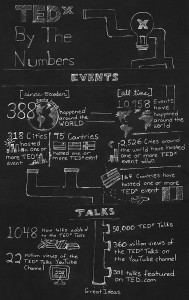 TEDx
By The
Numbers
EVENTS
since October
388 happened
around the
WORLD
218 Cities
hosted
one or
more
TEDx
events
75 Countries
hosted one or
more
TEDx event
all time
10,958 Events
happened
around the
world
2,526 Cities
around the
world have hosted
one or more
TEDx event
164 Countries
have hosted one
or more
TEDx event
TALKS
1048 New talks added
to the TEDx Talks
22 million views of the
TEDx Talks YouTube
channel
50,000 TEDx Talks
360 million views
of the TEDx Talks
on YouTube
channel
321 talks featured
on TED.com
Great Ideas